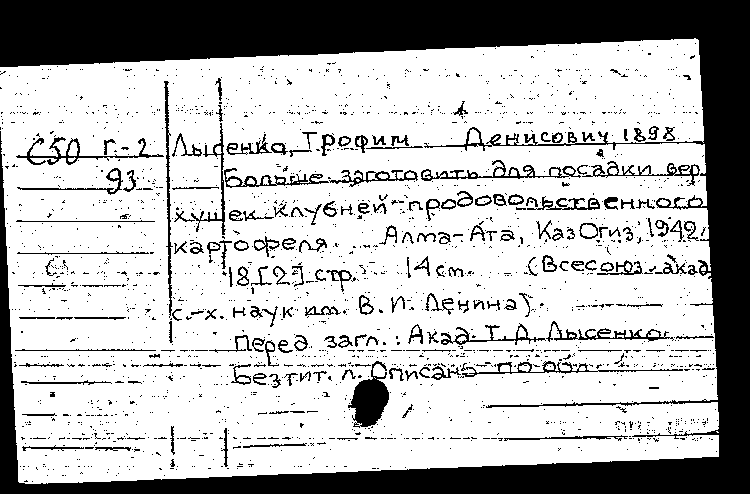 С50 г.-2 Лысенко, Трофим Денисович, 1898
93 Больше заготовить для посадки вер
хушек клубней продовольственного
картофеля. Алма-Ата, КазОгиз, 1942.
18,[2] стр. 14 см. (Всесоюз. акад.
с.-х. наук им. В. И. Ленина).
Перед загл.: Акад. Т. Д. Лысенко.
Без тит. л. Описано по обл.